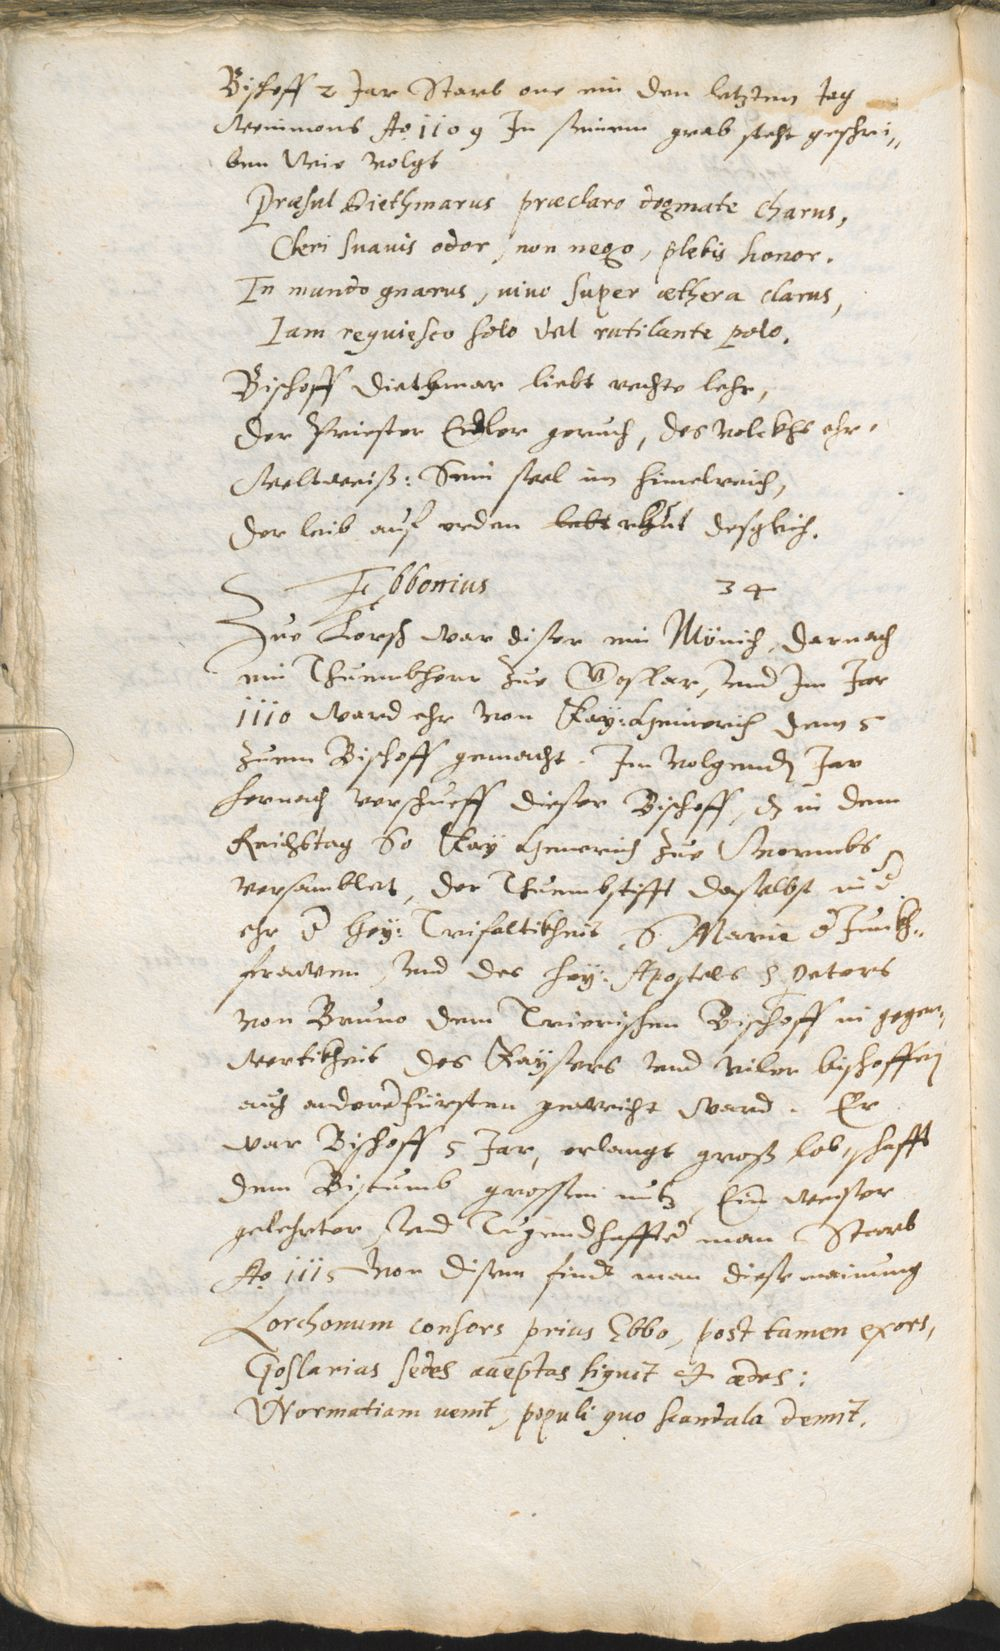 Bischoff 2 Jar Starb one ein den letzten tag
Weinmons Ao 1109 In seinem grab steht geschri„
ben Wie volgt
Præsul Diethmarus præclaro dogmate charus,
Cleri suauis odor, non nego, plebis honor.
In mundo gnarus, uiuo super æthera clarus,
Iam requiesco solo vel rutilante polo.
Bischoff Diethmar liebt rechte lehr,
Der Priester Edler geruch, des volckhs ehr.
Weltweiß: Sein seel im himelreich,
Der leib auf erden rhut desgleich.
Ebbonius 34
Zue Lorsch war diser ein Mönich, darnach
ein Thuembherr zue Goslar, und Im Jar
1110 ward ehr von Kay: Heinrich dem 5
zuem Bischoff gemacht. Im volgendn Jar
hernach verschueff dieser Bischoff, dz in dem
Reichstag So Kay Heinrich zue Wormbs
versamblet, der Thuembstifft daselbst in d
ehr d hey: Trifaltikheit S. Marie d Junckh„
frawen, und des hey: Apostels S Peters
von Bruno dem Trierischen Bischoff in gegen„
wertikheit des Kaysers und viler bischoffen
auch anderer fürsten geweicht ward. Er
war Bischoff 5 Jar, erlangt groß lob, schafft
dem Bistumb grossen nutz, Ein weiser
gelehrter und Tugendhaffter man Starb
Ao 1115 Von disem findt man diese mainung
Lorchonum consors prius Ebbo, post tamen exors,
Goslarias sedes acceptas liquit et ædes:
Wormatiam uenit, populi quo scandala demit.